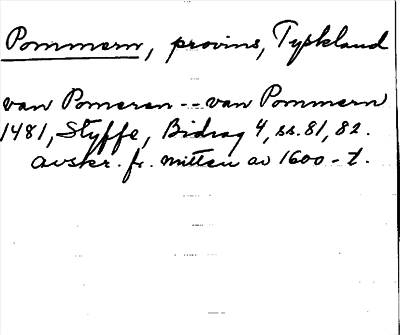 Pommern, provins, Tyskland
van Pomeren -- van Pommern
1481, Styffe, Bidrag 4, ss. 81, 82.
avskr. fr. mitten av 1600-t.